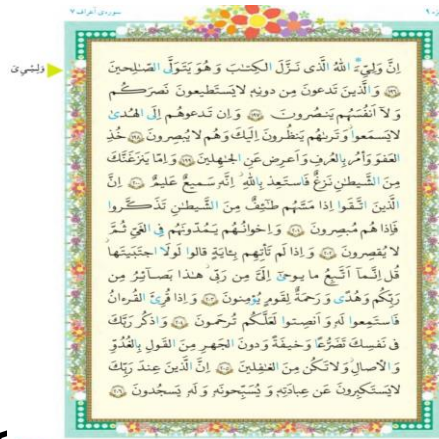 سوره‌ی اعراف ۷
وَلِيِّيَ
اِنَّ وَلِيِّيَ اللّٰهُ الَّذى نَزَّلَ الكِتٰبَ وَ هُوَ يَتَوَلَّى الصّٰلِحينَ
﴿١٩٦﴾ وَ الَّذينَ تَدعونَ مِن دونِهٖ لايَستَطيعونَ نَصرَكُم
وَ لآ اَنفُسَهُم يَنصُرونَ ﴿١٩٧﴾ وَ اِن تَدعوهُم اِلَى الهُدىٰ
لايَسمَعوا وَ تَرىٰهُم يَنظُرونَ اِلَيكَ وَ هُم لايُبصِرونَ ﴿١٩٨﴾ خُذِ
العَفوَ وَ أمُر بِالعُرفِ وَ اَعرِض عَنِ الجٰهِلينَ ﴿١٩٩﴾ وَ اِمّا يَنزَغَنَّكَ
مِنَ الشَّيطٰنِ نَزغٌ فَاستَعِذ بِاللّٰهِ اِنَّهٗ سَميعٌ عَليمٌ ﴿٢٠٠﴾ اِنَّ
الَّذينَ اتَّقَوا اِذا مَسَّهُم طٰئِفٌ مِنَ الشَّيطٰنِ تَذَكَّروا
فَاِذا هُم مُبصِرونَ ﴿٢٠١﴾ وَ اِخوانُهُم يَمُدّونَهُم فِى الغَىِّ ثُمَّ
لايُقصِرونَ ﴿٢٠٢﴾ وَ اِذا لَم تَأتِهِم بِـٔايَةٍ قالوا لَولَا اجتَبَيتَها
قُل اِنَّمآ اَتَّبِعُ ما يوحىٰٓ اِلَىَّ مِن رَبّى هٰذا بَصآئِرُ مِن
رَبِّكُم وَ هُدًى وَ رَحمَةٌ لِقَومٍ يُؤمِنونَ ﴿٢٠٣﴾ وَ اِذا قُرِئَ القُرءانُ
فَاستَمِعوا لَهٗ وَ اَنصِتوا لَعَلَّكُم تُرحَمونَ ﴿٢٠٤﴾ وَ اذكُر رَبَّكَ
فى نَفسِكَ تَضَرُّعًا وَ خيفَةً وَ دونَ الجَهرِ مِنَ القَولِ بِالغُدُوِّ
وَ الأصالِ وَ لاتَكُن مِنَ الغٰفِلينَ ﴿٢٠٥﴾ اِنَّ الَّذينَ عِندَ رَبِّكَ
لايَستَكبِرونَ عَن عِبادَتِهٖ وَ يُسَبِّحونَهٗ وَ لَهٗ يَسجُدونَ ﴿٢٠٦﴾